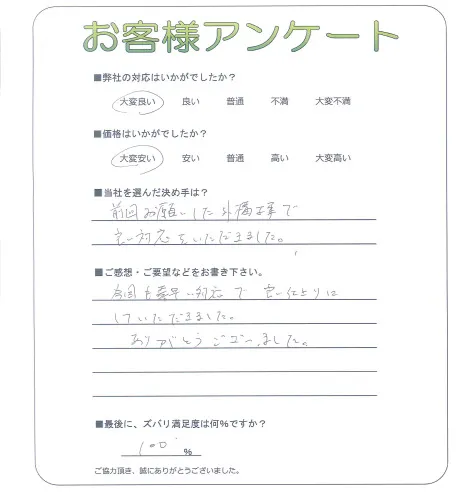 お客様アンケート
■弊社の対応はいかがでしたか？
大変良い 良い 普通 不満 大変不満
■価格はいかがでしたか？
大変安い 安い 普通 高い 大変高い
■当社を選んだ決め手は？
前回お願いした外構工事で
良い対応をいただきました。
■ご感想・ご要望などをお書き下さい。
今回も素早い対応で良い仕上りに
していただきました。
ありがとうございました。
■最後に、ズバリ満足度は何％ですか？
100 ％
ご協力頂き、誠にありがとうございました。